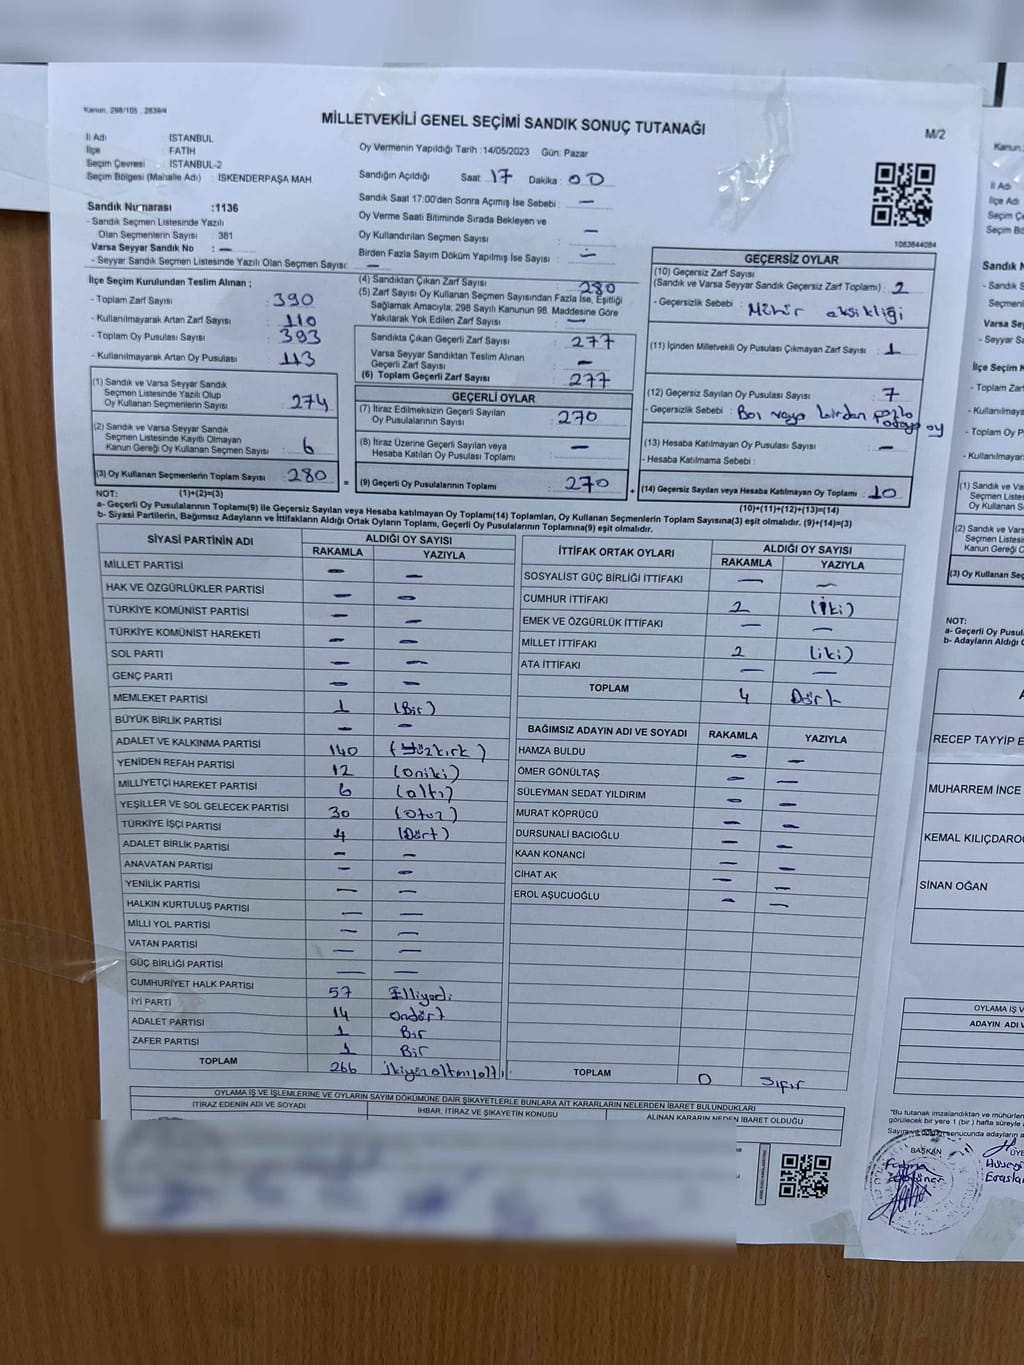 Kanun, 298/105 , 2839/4
MİLLETVEKİLİ GENEL SEÇİMİ SANDIK SONUÇ TUTANAĞI
M/2
İl Adı : İSTANBUL
İlçe : FATİH
Seçim Çevresi : İSTANBUL-2
Seçim Bölgesi (Mahalle Adı) : İSKENDERPAŞA MAH.
Sandık Numarası :1136
- Sandık Seçmen Listesinde Yazılı
Olan Seçmenlerin Sayısı : 381
Varsa Seyyar Sandık No : —
- Seyyar Sandık Seçmen Listesinde Yazılı Olan Seçmen Sayısı: —
Oy Vermenin Yapıldığı Tarih :14/05/2023 Gün: Pazar
Sandığın Açıldığı Saat :17 Dakika :00
Sandık Saat 17:00'den Sonra Açımış İse Sebebi : —
Oy Verme Saati Bitiminde Sırada Bekleyen ve
Oy Kullandırılan Seçmen Sayısı : —
Birden Fazla Sayım Döküm Yapılmış İse Sayısı : —
1083844084
İlçe Seçim Kurulundan Teslim Alınan ;
- Toplam Zarf Sayısı : 390
- Kullanılmayarak Artan Zarf Sayısı : 110
- Toplam Oy Pusulası Sayısı : 393
- Kullanılmayarak Artan Oy Pusulası : 113
(1) Sandık ve Varsa Seyyar Sandık
Seçmen Listesinde Yazılı Olup
Oy Kullanan Seçmenlerin Sayısı : 274
(2) Sandık ve Varsa Seyyar Sandık
Seçmen Listesinde Kayıtlı Olmayan
Kanun Gereği Oy Kullanan Seçmen Sayısı : 6
(3) Oy Kullanan Seçmenlerin Toplam Sayısı : 280
(4) Sandıktan Çıkan Zarf Sayısı : 280
(5) Zarf Sayısı Oy Kullanan Seçmen Sayısından Fazla İse, Eşitliği
Sağlamak Amacıyla, 298 Sayılı Kanunun 98. Maddesine Göre
Yakılarak Yok Edilen Zarf Sayısı : —
Sandıkta Çıkan Geçerli Zarf Sayısı : 277
Varsa Seyyar Sandıktan Teslim Alınan
Geçerli Zarf Sayısı : —
(6) Toplam Geçerli Zarf Sayısı : 277
GEÇERLİ OYLAR
(7) İtiraz Edilmeksizin Geçerli Sayılan
Oy Pusulalarının Sayısı : 270
(8) İtiraz Üzerine Geçerli Sayılan veya
Hesaba Katılan Oy Pusulası Toplamı : —
= (9) Geçerli Oy Pusulalarının Toplamı : 270
GEÇERSİZ OYLAR
(10) Geçersiz Zarf Sayısı
(Sandık ve Varsa Seyyar Sandık Geçersiz Zarf Toplamı) : 2
- Geçersizlik Sebebi : Mühür eksikliği
(11) İçinden Milletvekili Oy Pusulası Çıkmayan Zarf Sayısı : 1
(12) Geçersiz Sayılan Oy Pusulası Sayısı : 7
- Geçersizlik Sebebi : Boş veya birden fazla adaya oy
(13) Hesaba Katılmayan Oy Pusulası Sayısı : —
- Hesaba Katılmama Sebebi :
+ (14) Geçersiz Sayılan veya Hesaba Katılmayan Oy Toplamı : 10
NOT: (1)+(2)=(3)
(10)+(11)+(12)+(13)=(14)
a- Geçerli Oy Pusulalarının Toplamı(9) ile Geçersiz Sayılan veya Hesaba katılmayan Oy Toplamı(14) Toplamları, Oy Kullanan Seçmenlerin Toplam Sayısına(3) eşit olmalıdır. (9)+(14)=(3)
b- Siyasi Partilerin, Bağımsız Adayların ve İttifakların Aldığı Ortak Oyların Toplamı, Geçerli Oy Pusulalarının Toplamına(9) eşit olmalıdır.
SİYASİ PARTİNİN ADI
ALDIĞI OY SAYISI
RAKAMLA YAZIYLA
MİLLET PARTİSİ — —
HAK VE ÖZGÜRLÜKLER PARTİSİ — —
TÜRKİYE KOMÜNİST PARTİSİ — —
TÜRKİYE KOMÜNİST HAREKETİ — —
SOL PARTİ — —
GENÇ PARTİ — —
MEMLEKET PARTİSİ 1 (Bir)
BÜYÜK BİRLİK PARTİSİ — —
ADALET VE KALKINMA PARTİSİ 140 (Yüzkırk)
YENİDEN REFAH PARTİSİ 12 (oniki)
MİLLİYETÇİ HAREKET PARTİSİ 6 (altı)
YEŞİLLER VE SOL GELECEK PARTİSİ 30 (otuz)
TÜRKİYE İŞÇİ PARTİSİ 4 (Dört)
ADALET BİRLİK PARTİSİ — —
ANAVATAN PARTİSİ — —
YENİLİK PARTİSİ — —
HALKIN KURTULUŞ PARTİSİ — —
MİLLİ YOL PARTİSİ — —
VATAN PARTİSİ — —
GÜÇ BİRLİĞİ PARTİSİ — —
CUMHURİYET HALK PARTİSİ 57 Elliyedi
İYİ PARTİ 14 ondört
ADALET PARTİSİ 1 Bir
ZAFER PARTİSİ 1 Bir
TOPLAM 266 ikiyüzaltmışaltı
İTTİFAK ORTAK OYLARI
ALDIĞI OY SAYISI
RAKAMLA YAZIYLA
SOSYALİST GÜÇ BİRLİĞİ İTTİFAKI — —
CUMHUR İTTİFAKI 2 (İki)
EMEK VE ÖZGÜRLÜK İTTİFAKI — —
MİLLET İTTİFAKI 2 (iki)
ATA İTTİFAKI — —
TOPLAM 4 Dört
BAĞIMSIZ ADAYIN ADI VE SOYADI RAKAMLA YAZIYLA
HAMZA BULDU — —
ÖMER GÖNÜLTAŞ — —
SÜLEYMAN SEDAT YILDIRIM — —
MURAT KÖPRÜCÜ — —
DURSUNALİ BACIOĞLU — —
KAAN KONANCİ — —
CİHAT AK — —
EROL AŞUCUOĞLU — —
TOPLAM 0 Sıfır
OYLAMA İŞ VE İŞLEMLERİNE VE OYLARIN SAYIM DÖKÜMÜNE DAİR ŞİKAYETLERLE BUNLARA AİT KARARLARIN NELERDEN İBARET BULUNDUKLARI
İTİRAZ EDENİN ADI VE SOYADI
İHBAR, İTİRAZ VE ŞİKAYETİN KONUSU
ALINAN KARARIN NEDEN İBARET OLDUĞU
Kanun
İl Adı
İlçe Adı
Seçim Çe
Seçim Bö
Sandık N
- Sandık S
Seçmenl
Varsa Sey
- Seyyar S
İlçe Seçim K
- Toplam Zarf
- Kullanılmaya
- Toplam Oy P
- Kullanılmayar
(1) Sandık ve Vars
Seçmen Listes
Oy Kullanan Se
(2) Sandık ve Varsa
Seçmen Listesin
Kanun Gereği Oy
(3) Oy Kullanan Seç
NOT:
a- Geçerli Oy Pusul
b- Adayların Aldığı O
RECEP TAYYİP E
MUHARREM İNCE
KEMAL KILIÇDARO
SİNAN OĞAN
OYLAMA İŞ V
ADAYIN ADI V
"Bu tutanak imzalandıktan ve mühürlen
görülecek bir yere 1 (bir) hafta süreyle
BAŞKAN
ÜYE
Fatma